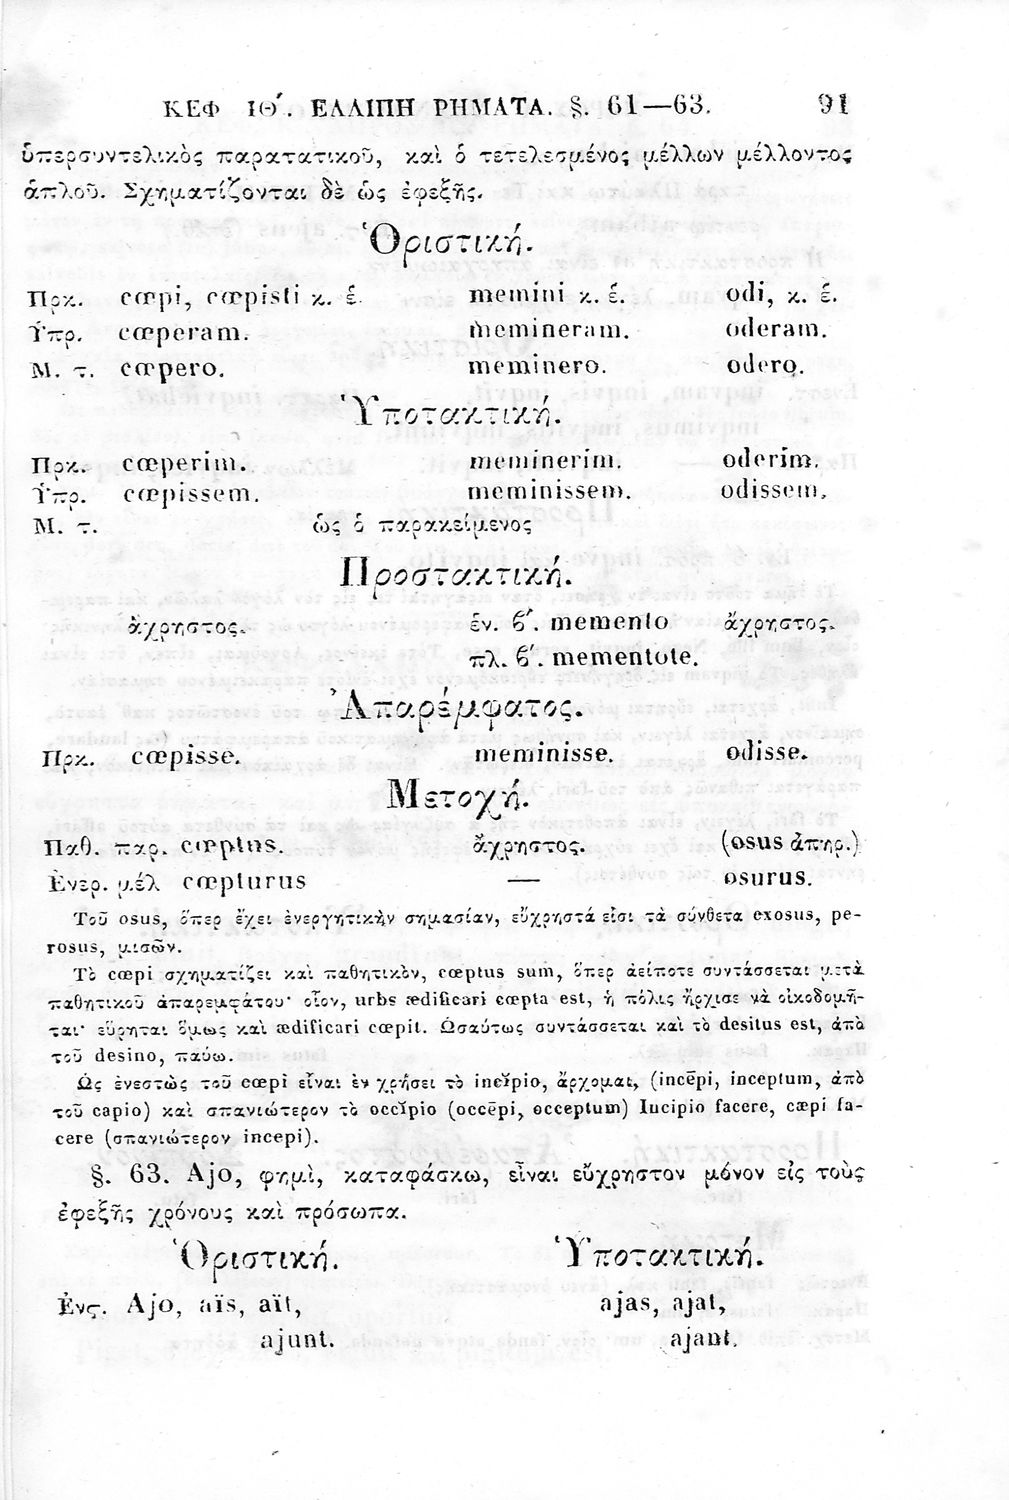 ΚΕΦ ΙΘ΄. ΕΛΛΙΠΗ ΡΗΜΑΤΑ. §. 61—63. 91
ὑπερσυντελικὸς παρατατικοῦ, καὶ ὁ τετελεσμένος μέλλων μέλλοντος
ἁπλοῦ. Σχηματίζονται δὲ ὡς ἐφεξῆς.
Ὁριστική.
Πρκ. cœpi, cœpisti κ. ἑ. memini κ. ἑ. odi, κ. ἑ.
Ὑπρ. cœperam. memineram. oderam.
Μ. τ. cœpero. meminero. odero.
Ὑποτακτική.
Πρκ. cœperim. meminerim. oderim.
Ὑπρ. cœpissem. meminissem. odissem.
Μ. τ. ὡς ὁ παρακείμενος
Προστακτική.
ἄχρηστος. ἑν. ϐ΄. memento ἄχρηστος.
πλ. ϐ΄. mementote.
Ἀπαρέμφατος.
Πρκ. cœpisse. meminisse. odisse.
Μετοχή.
Παθ. παρ. cœptus. ἄχρηστος. (osus ἀπηρ.)
Ἐνερ. μέλ cœpturus — osurus.
Τοῦ osus, ὅπερ ἔχει ἐνεργητικὴν σημασίαν, εὔχρηστά εἰσι τὰ σύνθετα exosus, pe-
rosus, μισῶν.
Τὸ cœpi σχηματίζει καὶ παθητικὸν, cœptus sum, ὅπερ ἀείποτε συντάσσεται μετὰ
παθητικοῦ ἀπαρεμφάτου· οἷον, urbs ædificari cœpta est, ἡ πόλις ἤρχισε νὰ οἰκοδομῆ-
ται· εὕρηται ὅμως καὶ ædificari cœpit. Ὡσαύτως συντάσσεται καὶ τὸ desitus est, ἀπὸ
τοῦ desino, παύω.
Ὡς ἐνεστὼς τοῦ cœpi εἶναι ἐν χρήσει τὸ incĭpio, ἄρχομαι, (incēpi, inceptum, ἀπὸ
τοῦ capio) καὶ σπανιώτερον τὸ occĭpio (occēpi, occeptum) Incipio facere, cæpi fa-
cere (σπανιώτερον incepi).
§. 63. Ajo, φημὶ, καταφάσκω, εἶναι εὔχρηστον μόνον εἰς τοὺς
ἐφεξῆς χρόνους καὶ πρόσωπα.
Ὁριστική. Ὑποτακτική.
Ἐνϛ. Ajo, aïs, aït, ajas, ajat,
ajunt. ajant.